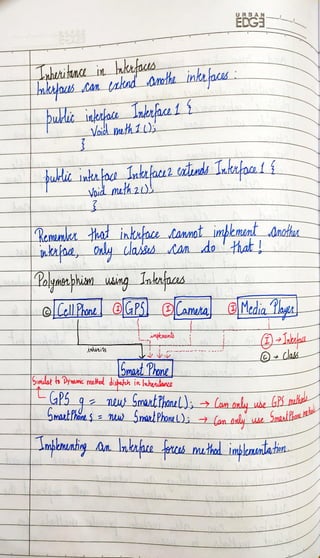 URBAN
EDGE
Inheritance in Interfaces
Interfaces can extend anothe interfaces :
public interface Interface 1 {
Void meth 1 ();
}
public interface Interface2 extends Interface 1 {
Void meth 2();
}
Remember that interface cannot implement another
interface, only classes can do that !
Polymorphism using Interfaces
C Cell Phone I GPS I Camera I Media Player
implements
I → Interface
inherits
C → class
Smart Phone
Similar to Dynamic method dispatch in Inheritance
GPS g = new SmartPhone(); → Can only use GPS methods
SmartPhone s = new SmartPhone(); → Can only use SmartPhone methods
Implementing an Interface forces method implementation